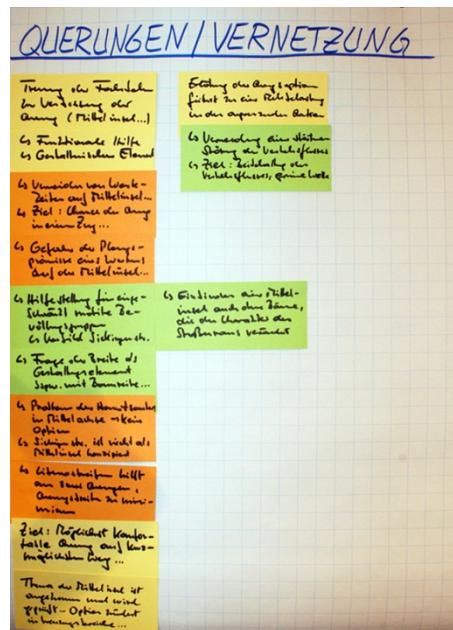 QUERUNGEN / VERNETZUNG
Trennung der Fahrbahn
zur Vereinfachung der
Querung (Mittelinsel...)
↳ Funktionale Hilfe
↳ Gestalterisches Element
↳ Vermeiden von Warte-
Zeiten auf Mittelinsel...
↳ Ziel: Chance der Querung
in einem Zug...
↳ Gefahr der Planungs-
prämisse eines Wartens
auf der Mittelinsel...
↳ Hilfestellung für einge-
schränkt mobile Be-
völkerungsgruppen
↳ Vorbild Sickingenstr.
↳ Frage der Breite als
Gestaltungselement
bspw. mit Baumreihe...
↳ Problem des
in Mittelachse → kein
Option
↳ Sickingenstr. ist nicht als
Mittelinsel konzipiert
↳ hilft
an Querungen,
Querungsbreite zu mini-
mieren
Ziel: Möglichst komfor-
table Querung auf kürz-
möglichstem Weg...
Thema der Mittelinsel ist
angekommen und wird
geprüft – Option
...
Erhöhung der Querungsoption
führt zu einer
in den angrenzenden
↳ Vermeidung einer stärkeren
Störung des Verkehrsflusses
↳ Ziel: des
Verkehrsflusses, grüne Welle
↳ einer Mittel-
insel auch ohne Bäume,
die den Charakter des
Straßenraums verändert